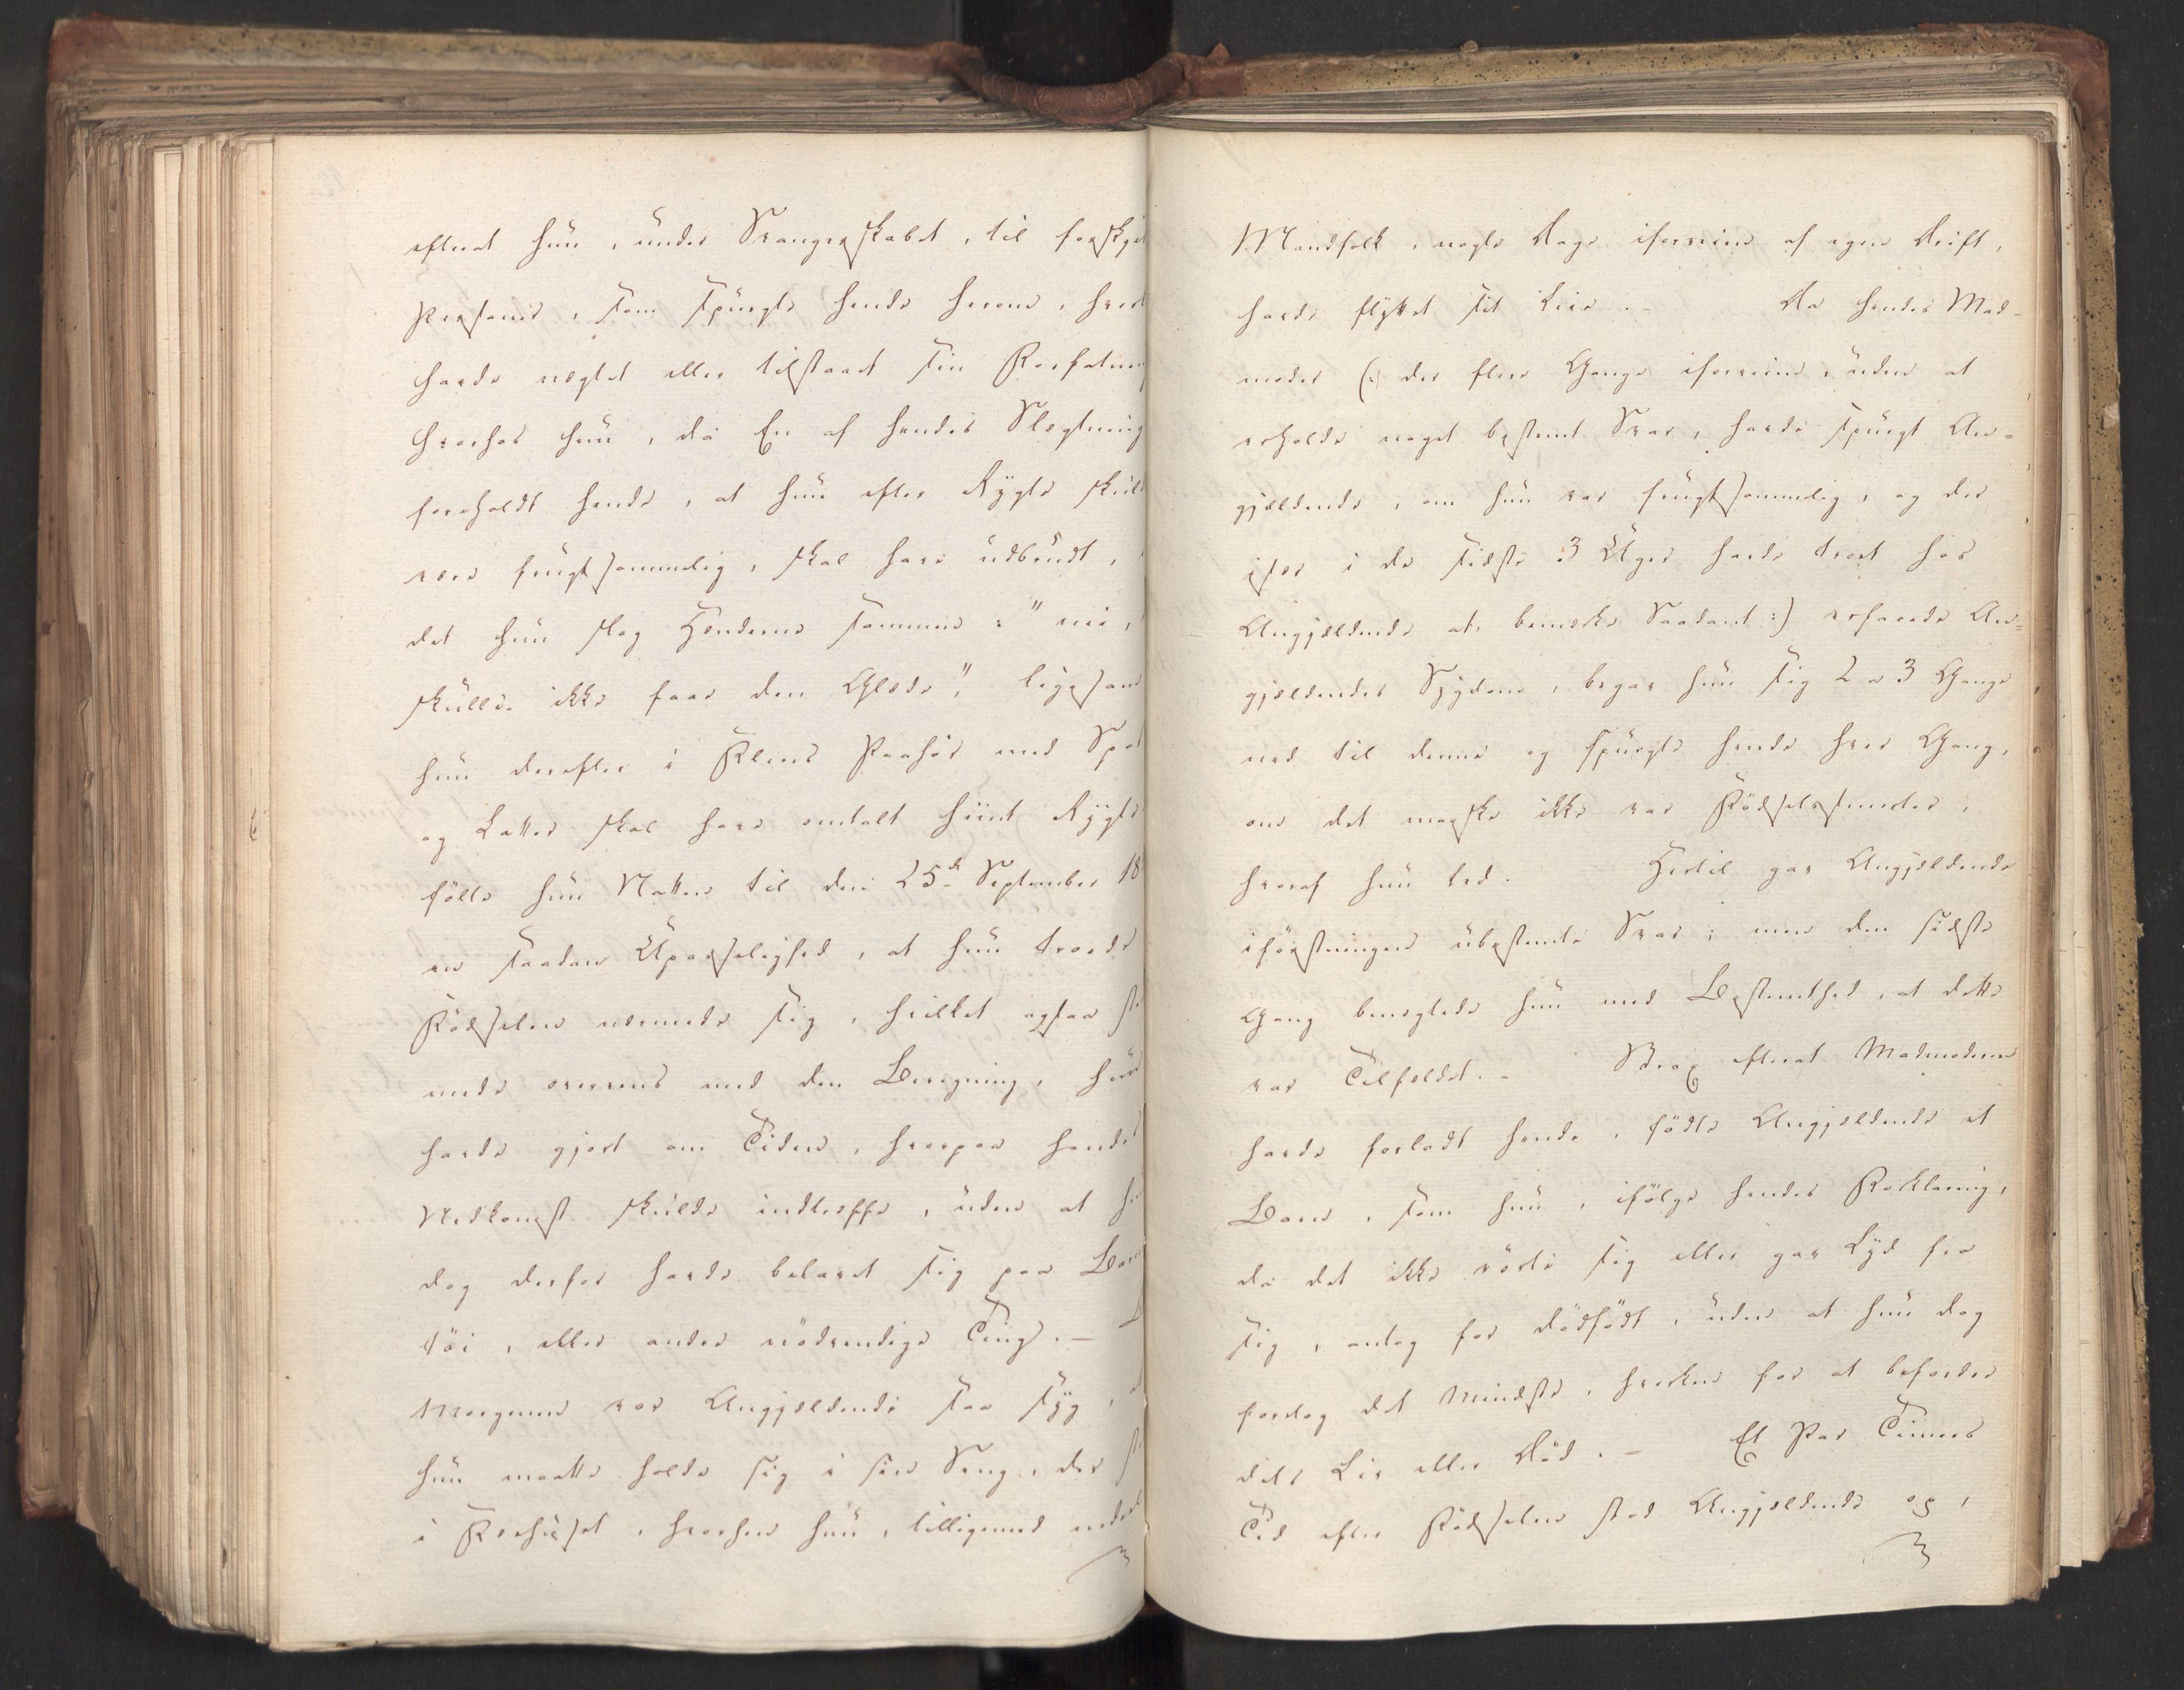 efterat hun, under Svangerskabet, til forskjel
Personer, som spurgte hende herom, hver
havde nægtet eller tilstaaet sin Forfatning
hvorhos hun, da En af hendes Slægtning
foreholdt hende, at hun efter Rygte skul
være frugtsommelig, skal have udbrudt,
det hun slog Hænderne sammen: "nei,
skulle ikke faae den Glæde", ligesom
hun derefter i Fleres Paahør med Spot
og Latter skal have omtalt hiint Rygte
følte hun Natten til den 25de September 18
en saadan Upasselighed, at hun troede
Fødselen nærmede sig, hvilket ogsaa st
mede overens med den Beregning, hun
havde gjort om Tiden, hvorpaa hendes
Nedkomst skulde indtræffe, uden at hun
dog derfor havde belavet sig paa Børne
tøi, eller andre nødvendige Ting. —
Morgenen var Angjældende saa syg,
hun maatte holde sig i sin Seng, der st
i Fæhuset, hvorhen hun, tilligemed
Mandfolk, nogle Dage iforveien af egen Drift,
havde flyttet sit Leie. - Da hendes Mad-
moder (: der flere Gange iforveien, uden at
erholde noget bestemt Svar, havde spurgt An=
gjældende, om hun var frugtsommelig, og der
især i de sidste 3 Uger havde troet hos
Angjældende at bemærke Saadant :) erfarede An=
gjældendes Sygdom, begav hun sig 2 a 3 Gange
ned til denne og spurgte hende hver Gang,
om det maaske ikke var Fødselssmerter,
hvoraf hun led. Hertil gav Angjældende
iførstningen ubestemte Svar; men den sidste
Gang benegtede hun med Bestemthed, at dette
var Tilfældet. - Strax efterat Madmoderen
havde forladt hende, fødte Angjældende et
Barn, som hun, ifølge hendes Forklaring,
da det ikke rørte sig eller gav Lyd fra
sig, antog for dødfødt, uden at hun dog
foretog det Mindste, hverken for at befordre
dets Liv eller Død. - Et Par Timers
Tid efter Fødselen stod Angjældende op,